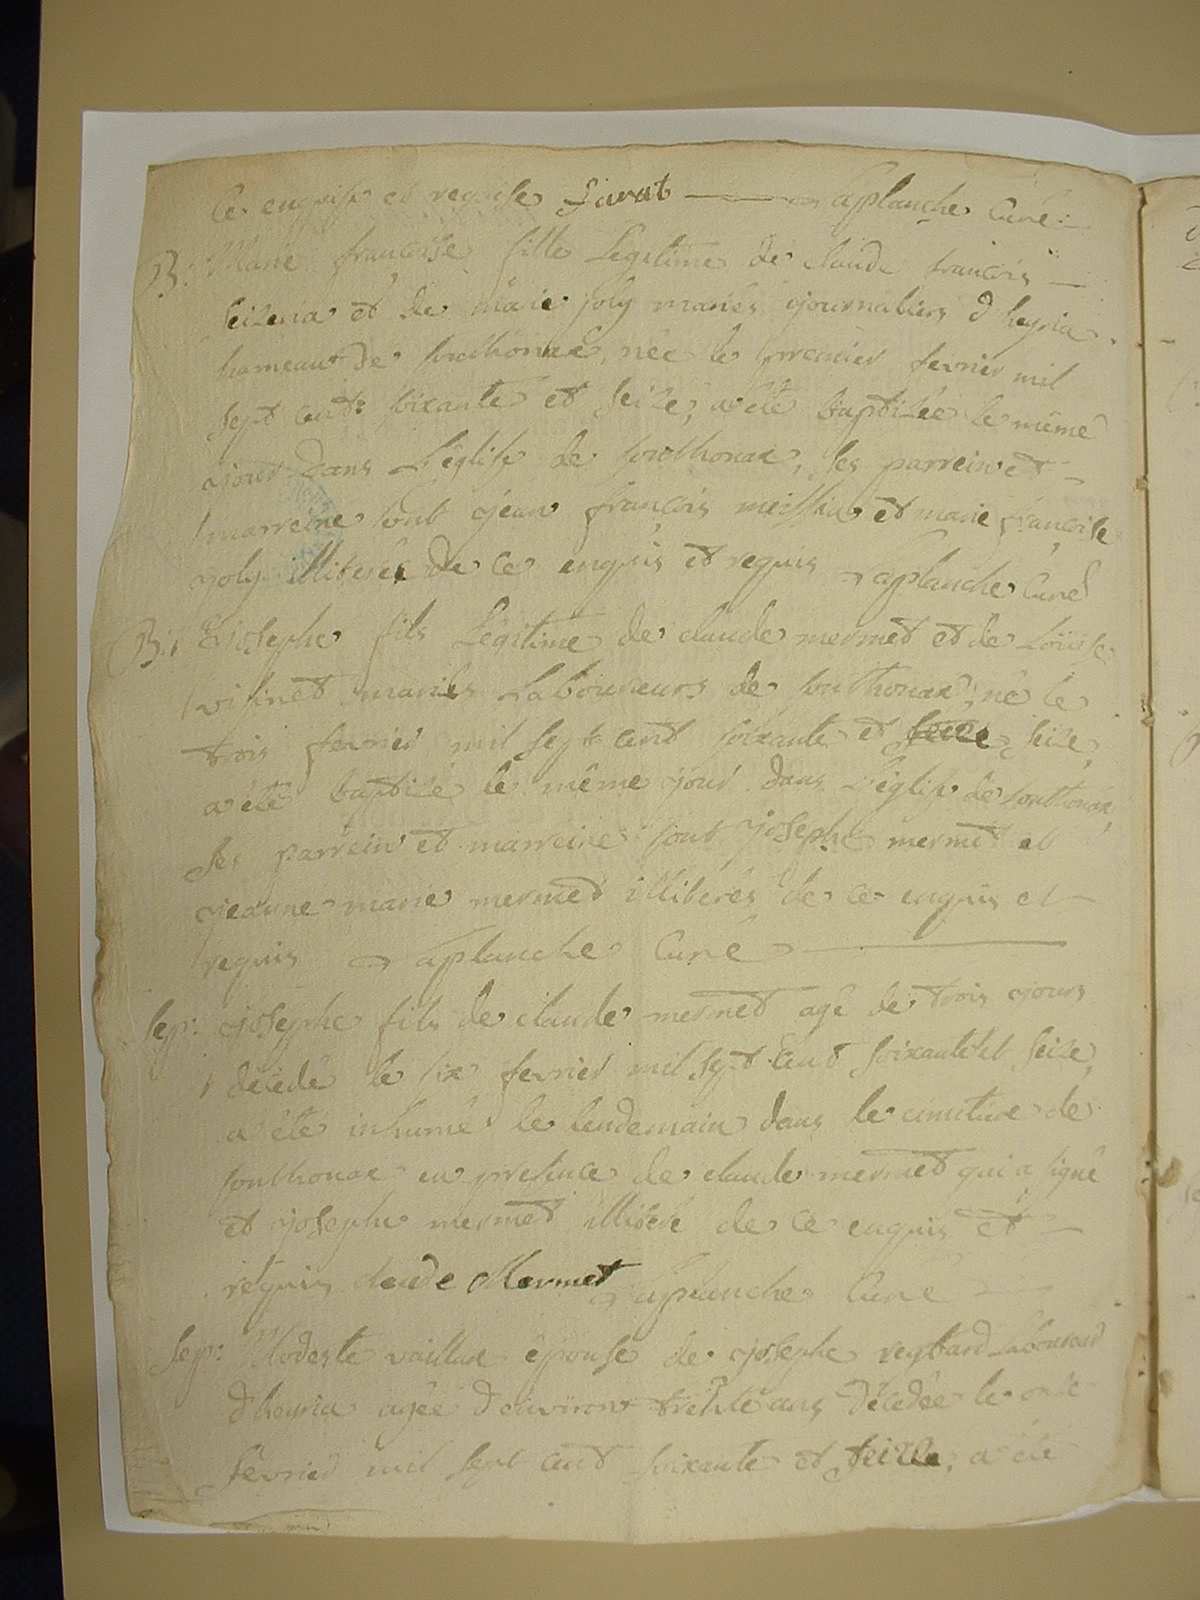 ce enquise et requise Livrat Laplanche Curé
B: Marie françoise fille Legitime de claude françois
et de marie joly mariés journaliers d heyria
hameau de southonax, née le premier fevrier mil
sept cent soixante et seize, a été baptizée le même
jour dans L'église de southonax, ses parrein et
marreine sont jean françois et marie françoise
joly illiberés de ce enquis et requis Laplanche Curé
B: joseph fils Légitime de claude mermet et de Loüise
mariés Laboureurs de southonax, né le
trois fevrier mil sept cent soixante et seize,
a été baptizé le même jour dans L'église de southonax,
ses parrein et marreine sont joseph mermet et
jeanne marie mermet illiberés de ce enquis et
requis Laplanche Curé
sep: joseph fils de claude mermet agé de trois jours
décédé le six fevrier mil sept cent soixante et seize,
a été inhumé le lendemain dans le cimitiere de
southonax en presence de claude mermet qui a signé
et joseph mermet illiberé de ce enquis et
requis claude Mermet Laplanche Curé
sep: Modeste vaillux épouse de joseph reybard Laboureur
d'heyria agée d'environ trente ans décédée le onze
fevrier mil sept cent soixante et seize, a été